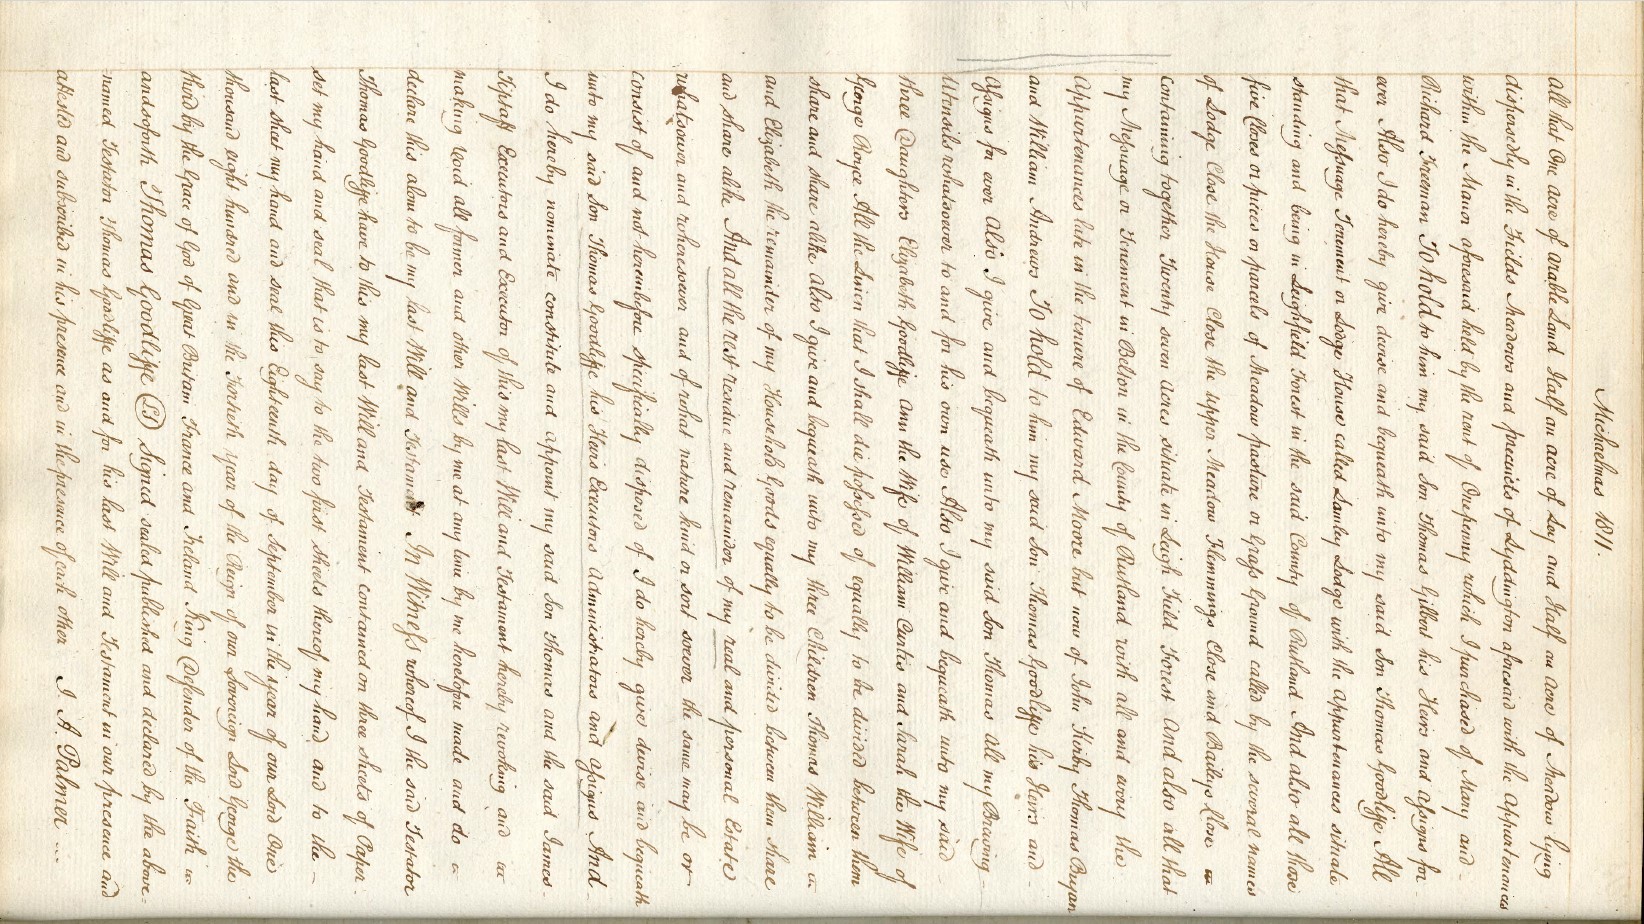 Michaelmas 1811.
all that One acre of arable Land Half an acre of Ley and Half an acre of Meadow lying
dispersedly in the Fields Meadows and precincts of Lyddington aforesaid with the Appurtenances
within the Manor aforesaid held by the rent of One penny which I purchased of Mary and
Richard Freeman To hold to him my said Son Thomas Gilbert his Heirs and Assigns for
ever Also I do hereby give devise and bequeath unto my said Son Thomas Goodlife All
that Messuage Tenement or Lodge House called Lambley Lodge with the Appurtenances situate
standing and being in Leighfield Forest in the said County of Rutland And also all those
five Closes or pieces or parcels of Meadow pasture or Grass Ground called by the several names
of Lodge Close the House Close the upper Meadow Flemmings Close and Baileys Close
containing together Twenty seven acres situate in Leigh Field Forest And also all that
my Messuage or Tenement in Belton in the County of Rutland with all and every the
Appurtenances late in the tenure of Edward Moore but now of John Kirby Thomas Bryan
and William Andrews To hold to him my said Son Thomas Goodlife his Heirs and
Assigns for ever Also I give and bequeath unto my said Son Thomas all my Brewing
Utensils whatsoever to and for his own use Also I give and bequeath unto my said
three Daughters Elizabeth Goodlife Ann the Wife of William Curtis and Sarah the Wife of
George Royce All the Linen that I shall die possessed of equally to be divided between them
share and share alike Also I give and bequeath unto my three Children Thomas William
and Elizabeth the remainder of my Household Goods equally to be divided between them share
and share alike And all the rest residue and remainder of my real and personal Estate
whatsoever and wheresoever and of what nature kind or sort soever the same may be or
consist of and not hereinbefore specifically disposed of I do hereby give devise and bequeath
unto my said Son Thomas Goodlife his Heirs Executors Administrators and Assigns And
I do hereby nominate constitute and appoint my said Son Thomas and the said James
Tiptaft Executors and Executor of this my last Will and Testament hereby revoking and
making void all former and other Wills by me at any time by me heretofore made and do
declare this alone to be my last Will and Testament In Witness whereof I the said Testator
Thomas Goodlife have to this my last Will and Testament contained on three sheets of Paper
set my hand and seal that is to say to the two first sheets thereof my hand and to the
last sheet my hand and seal this Eighteenth day of September in the year of our Lord One
thousand eight hundred and in the Fortieth year of the Reign of our Sovereign Lord George the
third by the Grace of God of Great Britain France and Ireland King Defender of the Faith
andsoforth Thomas Goodlife (LS) Signed sealed published and declared by the above-
named Testator Thomas Goodlife as and for his last Will and Testament in our presence and
attested and subscribed in his presence and in the presence of each other I. A. Palmer